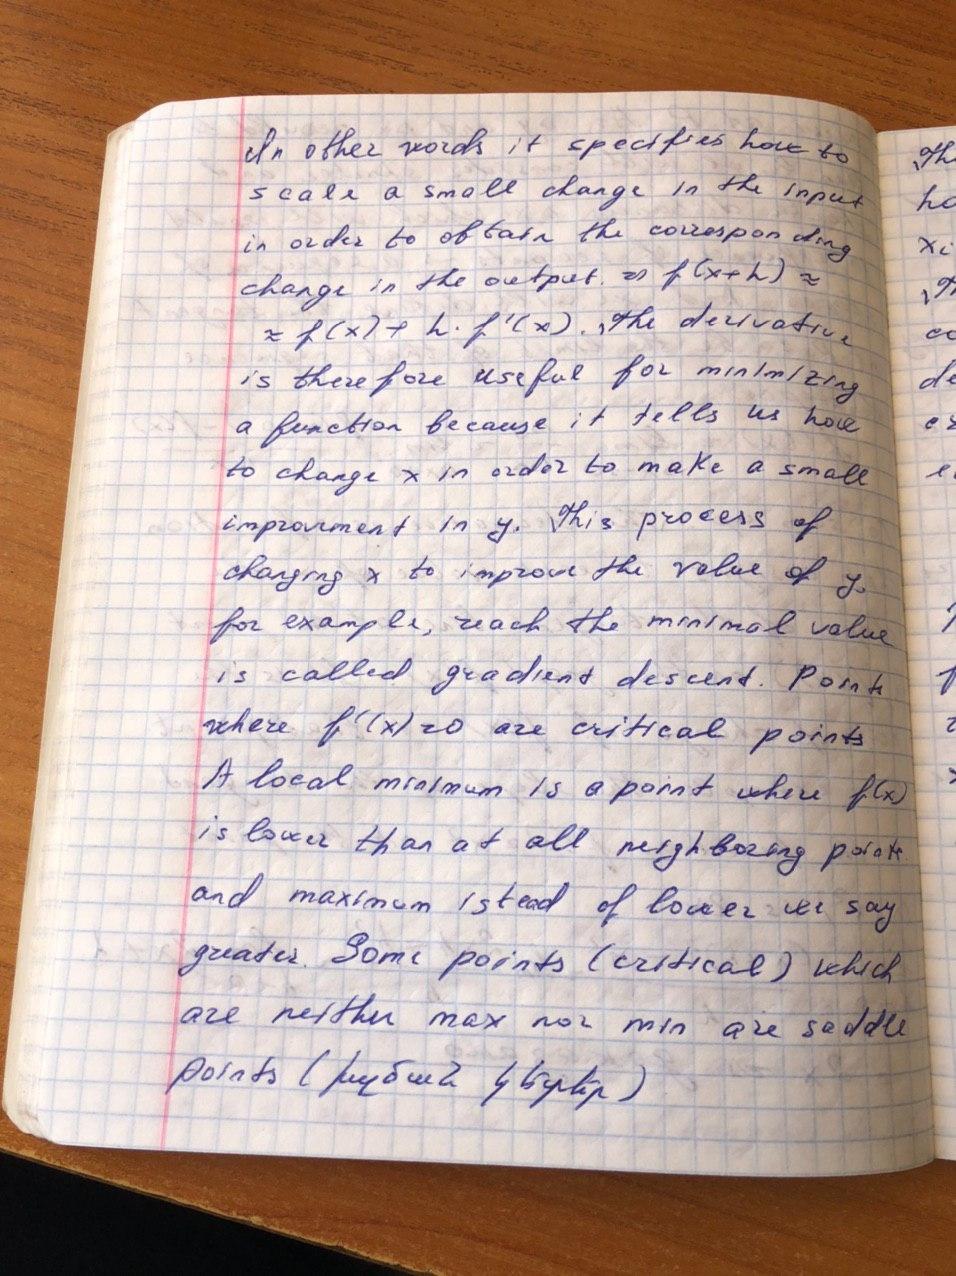 In other words it specifies how to
scale a small change in the input
in order to obtain the corresponding
change in the output. ⇒ f(x+h) ≈
≈ f(x) + h · f'(x). The derivative
is therefore useful for minimizing
a function because it tells us how
to change x in order to make a small
improvment in y. This process of
changing x to improve the value of y,
for example, reach the minimal value
is called gradient descent. Points
where f'(x)=0 are critical points
A local minimum is a point where f(x)
is lower than at all neighboring points
and maximum istead of lower we say
greater. Some points (critical) which
are neither max nor min are saddle
points (
The
ha
xi
Th
co
de